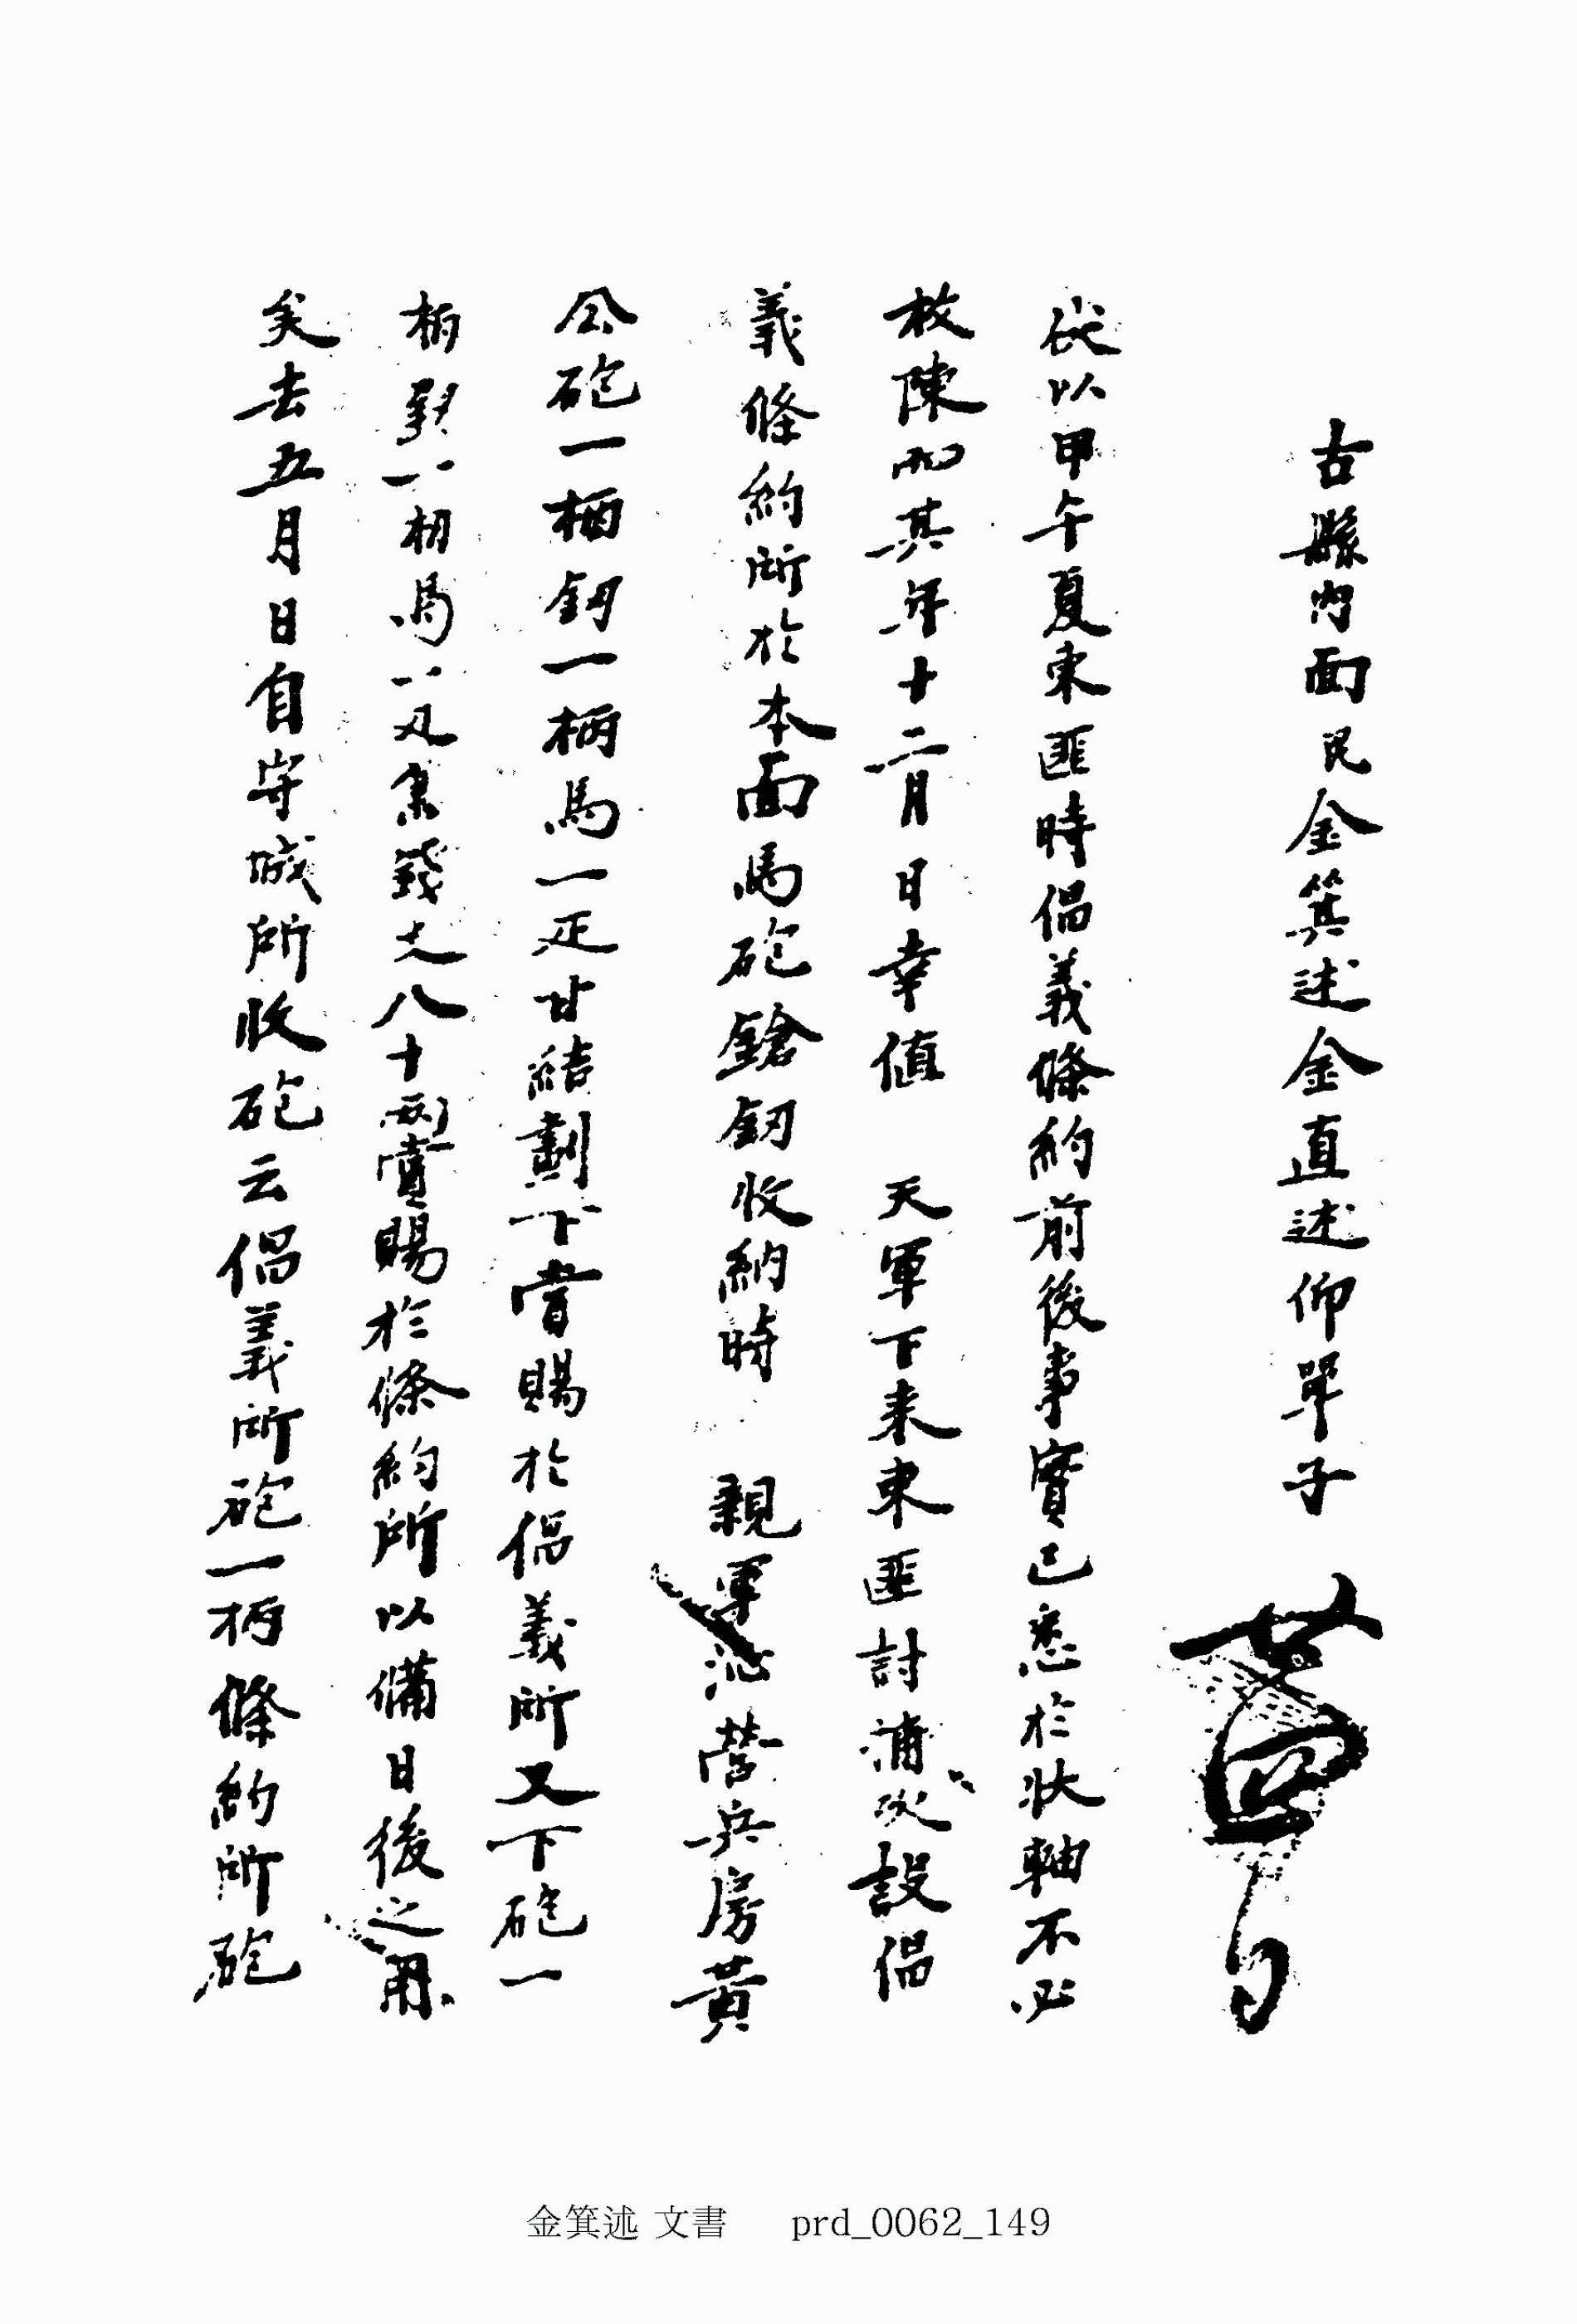 古縣內面民金箕述金直述仰單子
以甲午夏東匪時倡義條約前後事實已悉於狀軸不必
枚陳而其年十二月日幸值 天軍下来東匪討 設倡
義條約所於本面馬砲鎗釰收納時 親軍沁營兵房黃
公砲一柄釰一柄馬一疋甘結劃下賞賜於倡義所又下砲一
柄 一柄馬一疋 錢 八十兩賞賜於條約所以備日後之用
矣去五月日自守城所收砲云倡義所砲一柄條約所砲
金箕述 文書 prd_0062_149